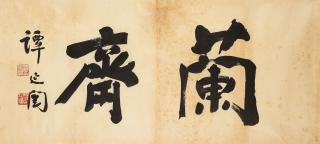 蘭齋
譚延闓